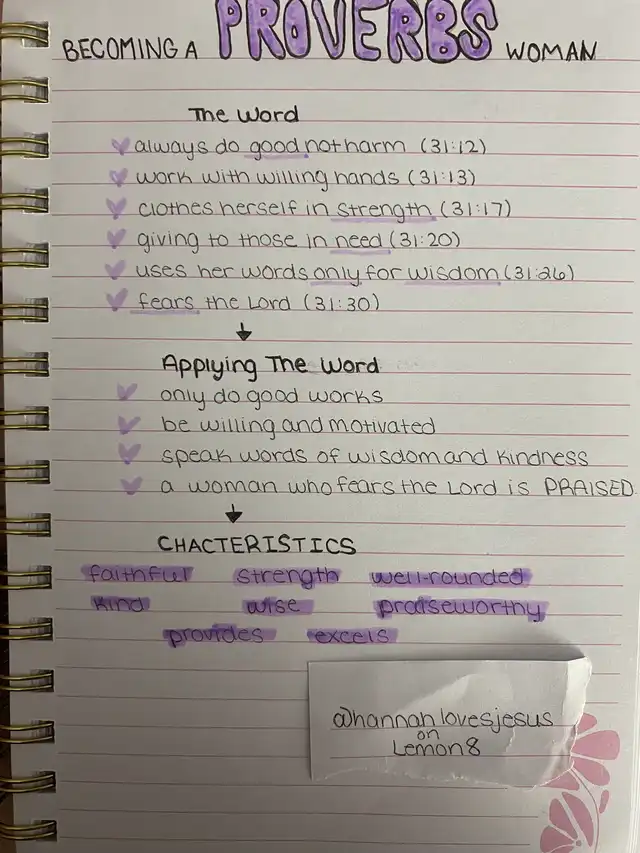 BECOMING A PROVERBS WOMAN
The Word
always do good not harm (31:12)
work with willing hands (31:13)
clothes herself in strength (31:17)
giving to those in need (31:20)
uses her words only for wisdom (31:26)
fears the Lord (31:30)
Applying The Word
only do good works
be willing and motivated
speak words of wisdom and kindness
a woman who fears the Lord is PRAISED
CHACTERISTICS
faithful strength well-rounded
kind wise praiseworthy
provides excels
@hannahlovesjesus
on
Lemon8